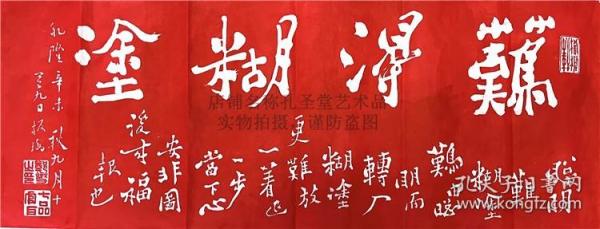 難得糊塗
聰明
難
糊塗
難由聰
明而
轉入
糊塗
更難放
一着退
一步
當下心
安非圖
後來福
報也
乾隆辛未秋九月十
有九日板橋
店铺名称孔圣堂艺术品
实物拍摄 谨防盗图
孔夫子旧书网
www.kongfz.com